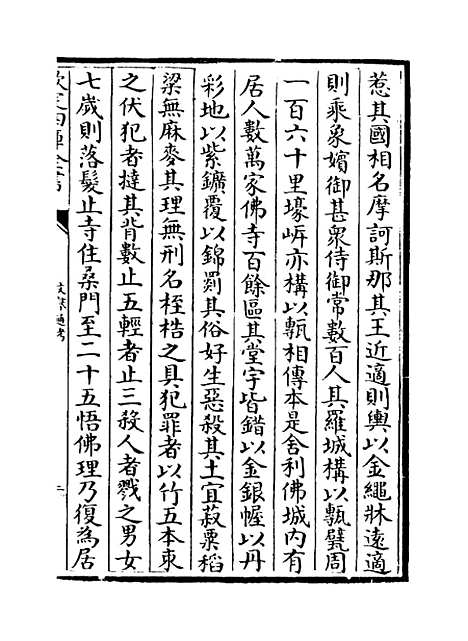 惹其國相名摩訶斯那其王近適則輿以金繩牀遠適
則乘象嬪御甚衆侍御常數百人其羅城構以甎甓周
一百六十里壕岸亦構以甎相傳本是舍利佛城内有
居人數萬家佛寺百餘區其堂宇皆錯以金銀幄以丹
彩地以紫鑛覆以錦罽其俗好生惡殺其土宜菽粟稻
梁無麻麥其理無刑名桎梏之具犯罪者以竹五本束
之伏犯者撻其背數止五輕者止三殺人者戮之男女
七歲則落髮止寺住桑門至二十五悟佛理乃復為居
欽定四庫全書
文獻通考